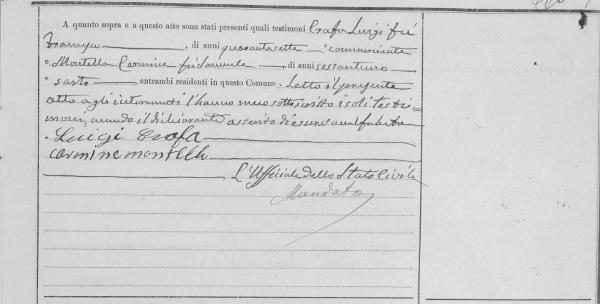 A quanto sopra e a questo atto sono stati presenti quali testimoni Crafa Luigi fu
, di anni quarantasette commerciante
e Montella Carmine fu Daniele, di anni sessantuno
sarto entrambi residenti in questo Comune. Letto il presente
atto agli intervenuti l'hanno meco sottoscritto i soli testi=
moni, avendo il dichiarante asserito di essere analfabeta
Luigi Crafa
Carmine Montella
L'Ufficiale dello Stato Civile